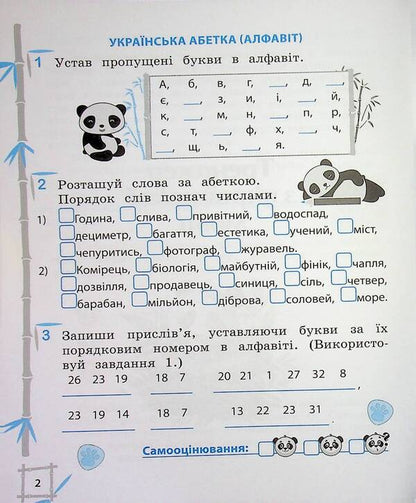 УКРАЇНСЬКА АБЕТКА (АЛФАВІТ)
1 Устав пропущені букви в алфавіт.
А, б, в, г, __, д, __,
є, __, з, и, і, __, й,
к, __, м, н, __, п, р,
с, т, __, ф, х, __, ч,
__, щ, ь, __, я.
2 Розташуй слова за абеткою.
Порядок слів познач числами.
1) Година, слива, привітний, водоспад,
дециметр, багаття, естетика, учений, міст,
чепуритись, фотограф, журавель.
2) Комірець, біологія, майбутній, фінік, чапля,
дозвілля, продавець, синиця, сіль, четвер,
барабан, мільйон, діброва, соловей, море.
3 Запиши прислів'я, уставляючи букви за їх
порядковим номером в алфавіті. (Використо-
вуй завдання 1.)
26 23 19 18 7 20 21 1 27 32 8 ,
23 19 14 18 7 13 22 23 31 .
Самооцінювання:
2